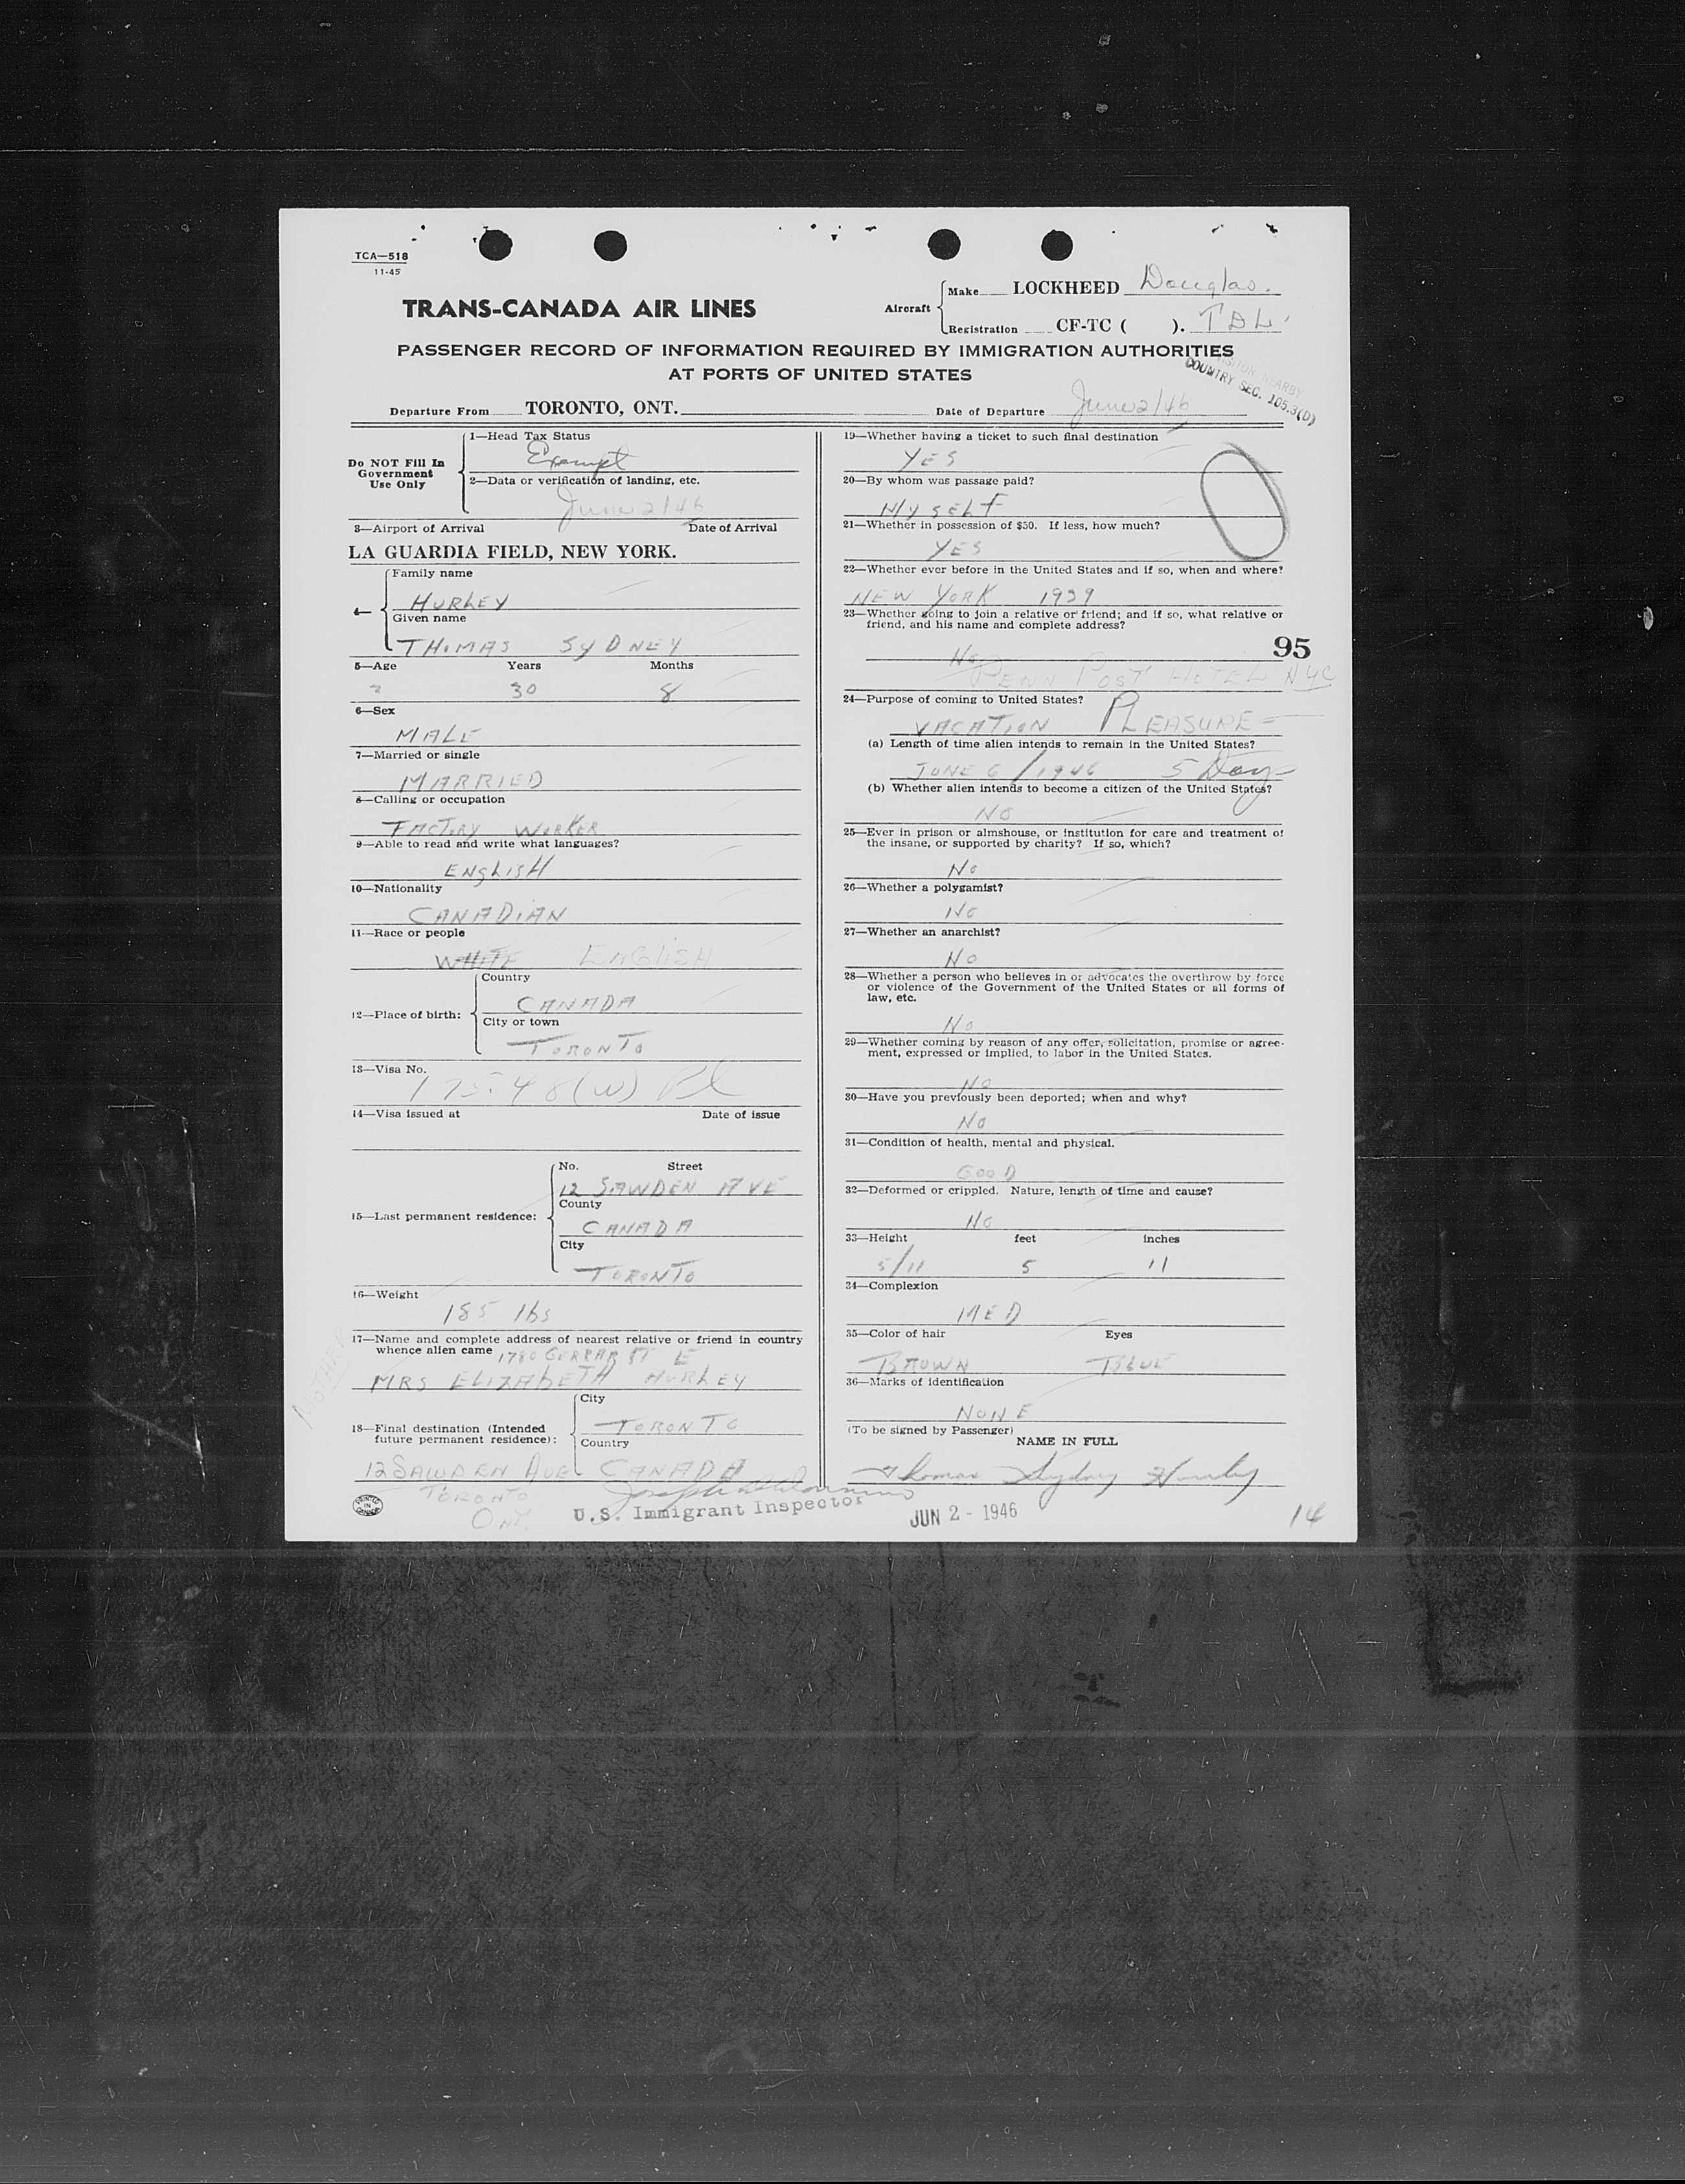 TCA—518
11-45
TRANS-CANADA AIR LINES
Aircraft
Make LOCKHEED Douglas.
Registration CF-TC ( ). TDL
PASSENGER RECORD OF INFORMATION REQUIRED BY IMMIGRATION AUTHORITIES
AT PORTS OF UNITED STATES
VISITOR NEARBY
COUNTRY SEC. 105.3(D)
Departure From TORONTO, ONT.
Date of Departure June 2/46
Do NOT Fill In
Government
Use Only
1—Head Tax Status
Exempt
2—Data or verification of landing, etc.
June 2/46
3—Airport of Arrival Date of Arrival
LA GUARDIA FIELD, NEW YORK.
4—
Family name
HURLEY
Given name
THOMAS SYDNEY
5—Age Years Months
30 8
6—Sex
MALE
7—Married or single
MARRIED
8—Calling or occupation
FACTORY WORKER
9—Able to read and write what languages?
ENGLISH
10—Nationality
CANADIAN
11—Race or people
WHITE ENGLISH
12—Place of birth:
Country
CANADA
City or town
TORONTO
13—Visa No.
175.48(W)
14—Visa issued at Date of issue
15—Last permanent residence:
No. Street
12 SAWDEN AVE
County
CANADA
City
TORONTO
16—Weight
185 lbs
17—Name and complete address of nearest relative or friend in country
whence alien came 1780 GERRAR ST E
MRS ELIZABETH HURLEY
MOTHER
18—Final destination (Intended
future permanent residence):
City
TORONTO
Country
12 SAWDEN AVE CANADA
TORONTO
ONT.
PRINTED IN CANADA
U.S. Immigrant Inspector
19—Whether having a ticket to such final destination
YES
20—By whom was passage paid?
MYSELF
21—Whether in possession of $50. If less, how much?
YES
22—Whether ever before in the United States and if so, when and where?
NEW YORK 1939
23—Whether going to join a relative or friend; and if so, what relative or
friend, and his name and complete address?
95
No
PENN POST HOTEL NYC
24—Purpose of coming to United States?
VACATION PLEASURE
(a) Length of time alien intends to remain in the United States?
JUNE 6/1946 5 Days
(b) Whether alien intends to become a citizen of the United States?
NO
25—Ever in prison or almshouse, or institution for care and treatment of
the insane, or supported by charity? If so, which?
No
26—Whether a polygamist?
NO
27—Whether an anarchist?
No
28—Whether a person who believes in or advocates the overthrow by force
or violence of the Government of the United States or all forms of
law, etc.
No
29—Whether coming by reason of any offer, solicitation, promise or agree-
ment, expressed or implied, to labor in the United States.
NO
30—Have you previously been deported; when and why?
NO
31—Condition of health, mental and physical.
GOOD
32—Deformed or crippled. Nature, length of time and cause?
NO
33—Height feet inches
5/11 5 11
34—Complexion
MED
35—Color of hair Eyes
BROWN BLUE
36—Marks of identification
NONE
(To be signed by Passenger)
NAME IN FULL
Thomas Sydney Hurley
JUN 2 - 1946
14